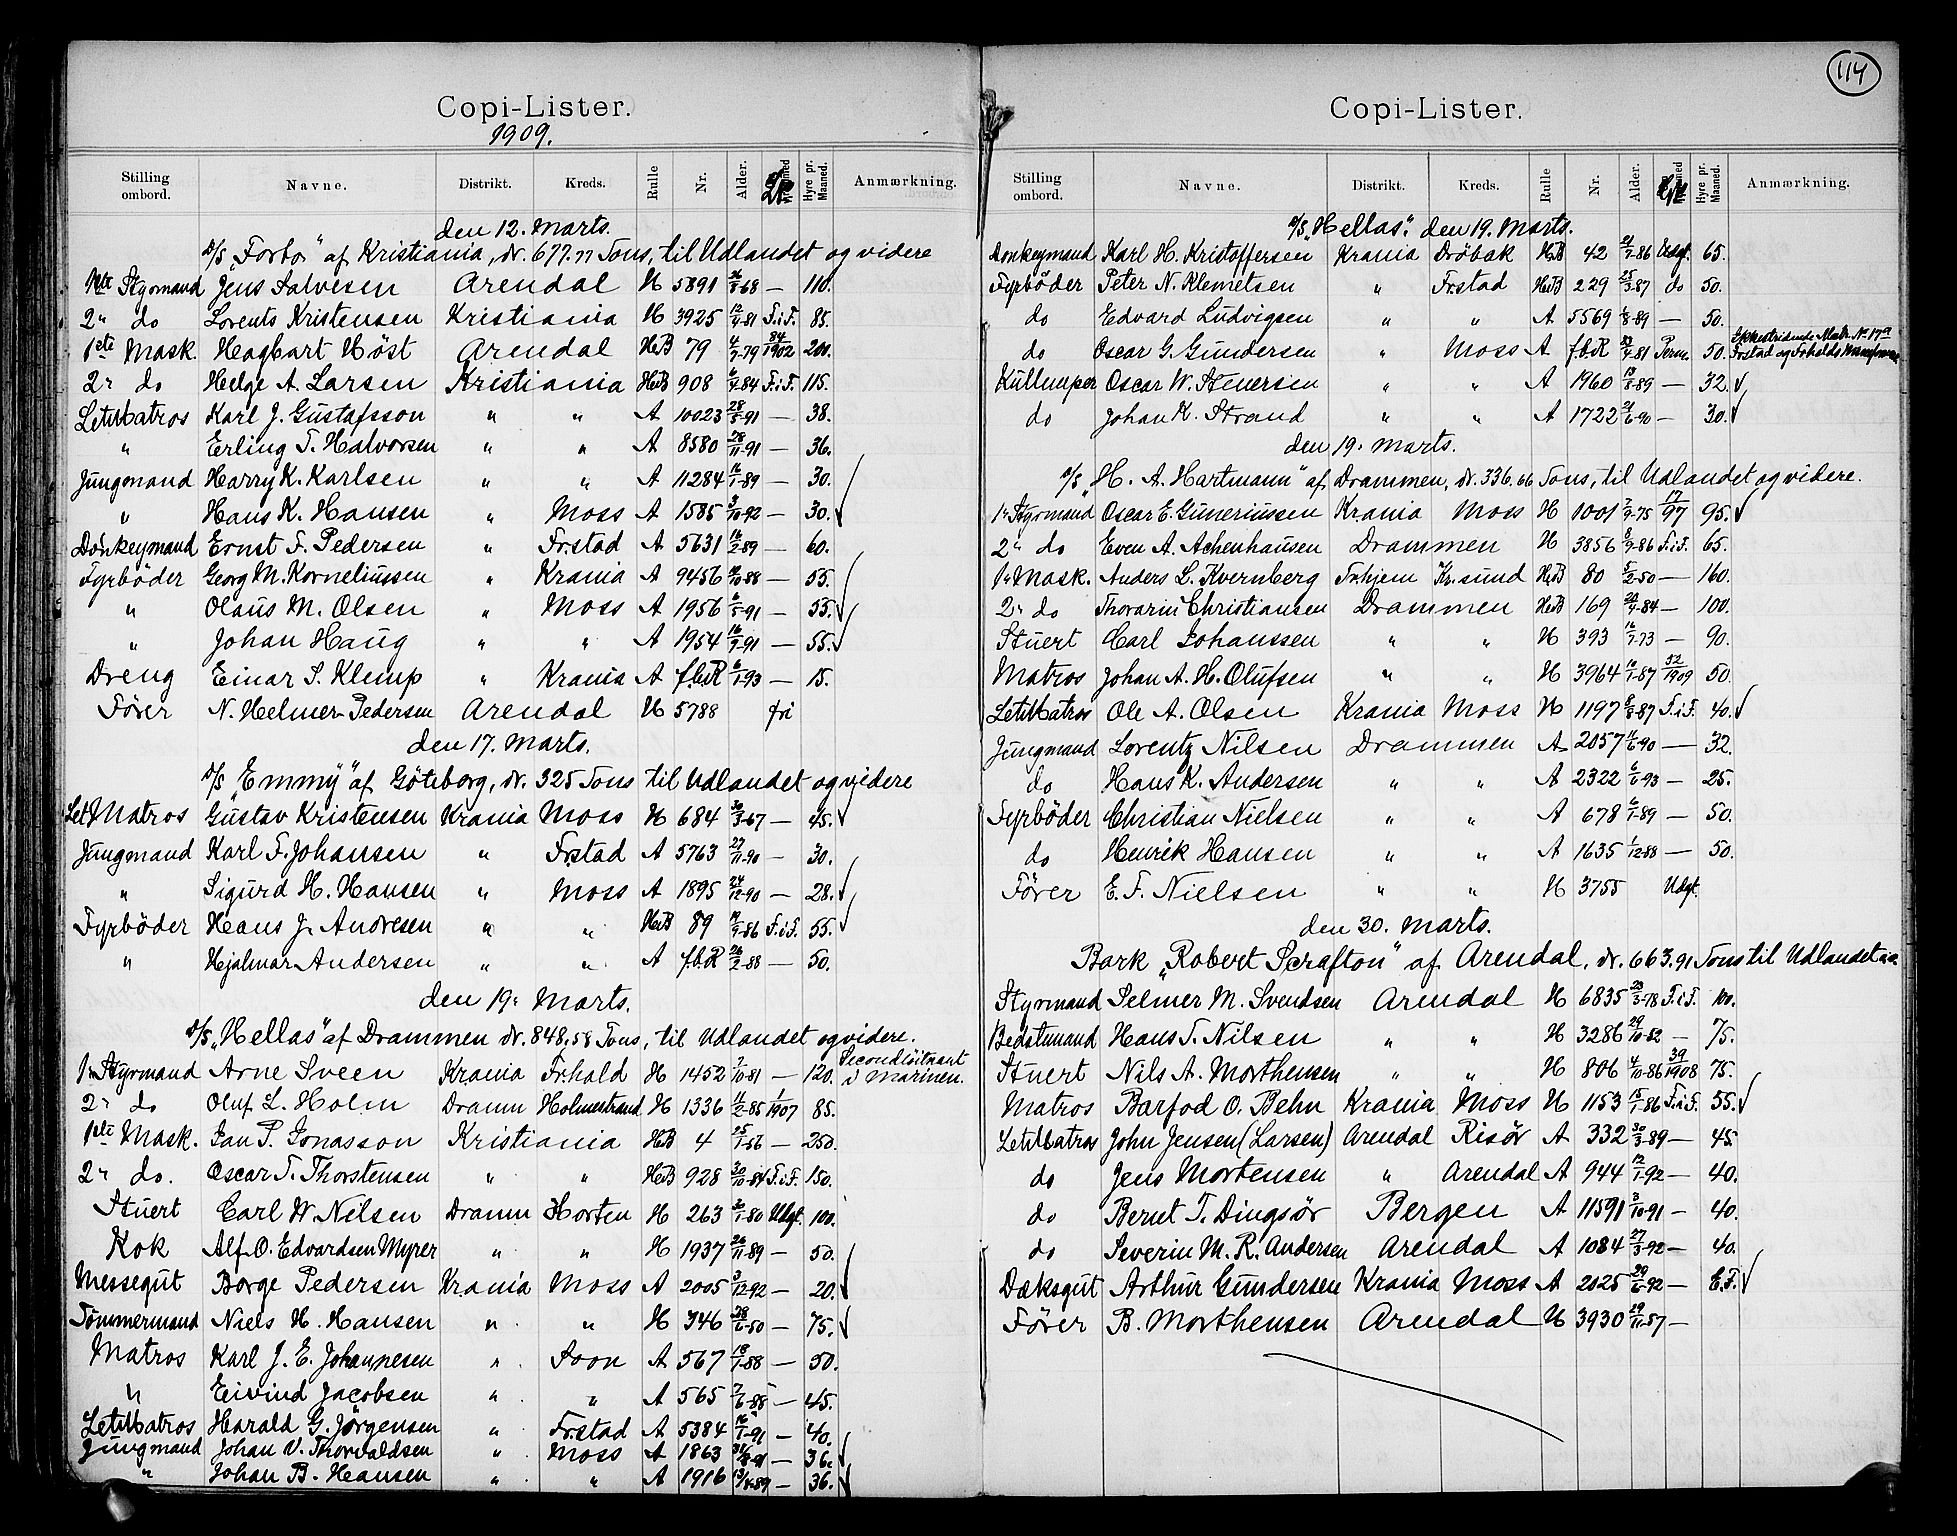 Copi-Lister.
1909.
Stilling ombord. Navne. Distrikt. Kreds. Rulle Nr. Alder. Hyre pr. Maaned. Anmærkning.
den 12. Marts.
D/S "Forto" af Kristiania, dr. 677.77 Tons, til Udlandet og videre
1ste Styrmand Jens Salvesen Arendal H 5891 26/5-68 — 110.
2n do Lorents Kristensen Kristiania H 3925 12/4-81 F.i.F. 85.
1ste Mask. Hagbart Höst Arendal HdB 79 4/7-79 84/1902 200.
2n do Helge A. Larsen Kristiania HdB 908 6/4-84 F.i.F. 115.
LetMatros Karl J. Gustafsson " " A 10023 28/5-91 — 38.
" Erling T. Halvorsen " " A 8580 28/11-91 — 36.
Jungmand Harry K. Karlsen " " A 11284 16/1-89 — 30.
" Hans K. Hansen " Moss A 1585 3/10-92 — 30. ✓
Donkeymand Ernst F. Pedersen " Fr.stad A 5631 16/2-89 — 60.
Fyrböder Georg M. Korneliussen " Krania A 9456 10/10-88 — 55.
" Olaus M. Olsen " Moss A 1956 6/5-91 — 55. ✓
" Johan Haug " " A 1954 16/9-91 — 55. ✓
Dreng Einar S. Klemp " Krania A f.b.R 6/1-93 — 15.
Förer N. Helmer Pedersen Arendal H 5788 fri
den 17. Marts.
D/S "Emmy" af Göteborg, dr. 325 Tons til Udlandet og videre
LetMatros Gustav Kristensen Krania Moss H 684 30/3-67 — 45. ✓
Jungmand Karl F. Johansen " Fr.stad A 5763 27/11-90 — 30.
" Sigurd H. Hansen " Moss A 1895 24/12-90 — 28. ✓
Fyrböder Hans J. Andresen " " HdB 89 19/9-86 F.i.F. 55. ✓
" Hjalmar Andersen " " A f.b.R 26/2-88 — 50.
den 19. Marts.
D/S "Hellas" af Drammen dr. 848,58 Tons, til Udlandet og videre.
1n Styrmand Arne Sveen Krania Fr.hald H 1452 7/10-81 — 120. Secondlöitnant i Marinen.
2n do Oluf L. Holm Dramn Holmestrand H 1336 11/2-85 1/1907 85.
1ste Mask. Jan P. Jonasson Kristiania HdB 4 25/1-56 — 250.
2n do. Oscar T. Thorstensen " " HdB 928 30/10-84 F.i.F. 150.
Stuert Carl W. Nilsen Dramn Horten H 263 2/1-80 Udgt. 100.
Kok Alf O. Edvardsen Myrer " " H 1937 26/11-89 — 50.
Messegut Borge Pedersen Krania Moss A 2005 3/12-92 — 20. ✓
Tömmermand Niels H. Hansen " " H 346 28/6-50 — 75. ✓
Matros Karl J. E. Johannesen " Soon A 567 18/1-88 — 50.
" Eivind Jacobsen " " A 565 7/6-88 — 45.
LetMatros Harald G. Jörgensen " Fr.stad A 5384 16/1-91 — 40.
Jungmand Johan V. Thorvaldsen " Moss A 1863 31/8-91 — 36. ✓
" Johan B. Hansen " " A 1916 13/4-89 — 36. ✓
114
Copi-Lister.
Stilling ombord. Navne. Distrikt. Kreds. Rulle Nr. Alder. Hyre pr. Maaned. Anmærkning.
D/S "Hellas". den 19. Marts.
Donkeymand Karl H. Kristoffersen Krania Dröbak HdB 42 21/7-86 Udgt. 65.
Fyrböder Peter N. Klemetsen " Fr.stad HdB 229 25/3-87 do 50.
do Edvard Ludvigsen " " A 5569 1/8-89 — 50.
do Oscar G. Gundersen " Moss A f.b.R 22/4-81 Perm. 50.
Kullemper Oscar W. Stenersen " " A 1960 19/8-89 — 32. ✓
do Johan K. Strand " " A 1722 21/6-90 — 30. ✓
den 19. Marts.
D/S "H. A. Hartmann" af Drammen, dr. 336,66 Tons, til Udlandet og videre.
1n Styrmand Oscar E. Guneriussen Krania Moss H 1001 7/9-75 17/97 95. ✓
2n do Even A. Achenhausen Drammen H 3856 8/9-86 F.i.F. 65.
1n Mask. Anders L. Kvernberg Trhjem Kr.sund HdB 80 5/2-50 — 160.
2n do Thorarin Christiansen Drammen HdB 169 24/4-84 — 100.
Stuert Carl Johanssen " " H 393 16/7-73 — 90.
Matros Johan A. H. Olufsen " " H 3964 10/1-87 52/1909 50.
LetMatros Ole A. Olsen Krania Moss H 1197 8/8-87 F.i.F. 40. ✓
Jungmand Lorentz Nilsen Drammen A 2057 11/6-90 — 32.
do Hans K. Andersen " " A 2322 6/6-93 — 25.
Fyrböder Christian Nielsen " " A 678 6/1-89 — 50.
do Henrik Hansen " " A 1635 1/12-88 — 50.
Förer E. F. Nielsen " " H 3755 Udgt.
den 30. Marts.
Bark "Robert Scrafton" af Arendal, dr. 663,91 Tons til Udlandet
Styrmand Selmer M. Svendsen Arendal H 6835 23/3-78 F.i.F. 100.
Bedstemand Hans T. Nilsen " " H 3286 29/10-52 — 75.
Stuert Nils A. Morthensen " " H 806 4/10-86 39/1908 75.
Matros Barfod O. Behn Krania Moss H 1153 15/1-86 F.i.F. 55. ✓
LetMatros John Jensen (Larsen) Arendal Risör A 332 30/3-89 — 45.
do Jens Mortensen " Arendal A 944 12/1-92 — 40.
do Bernt T. Dingsör Bergen A 11591 3/10-91 — 40.
do Severin M. R. Andersen Arendal A 1084 27/3-92 — 40.
Dæksgut Arthur Gundersen Krania Moss A 2025 29/6-92 — E.F. ✓
Förer B. Morthensen Arendal H 3930 29/11-57 —